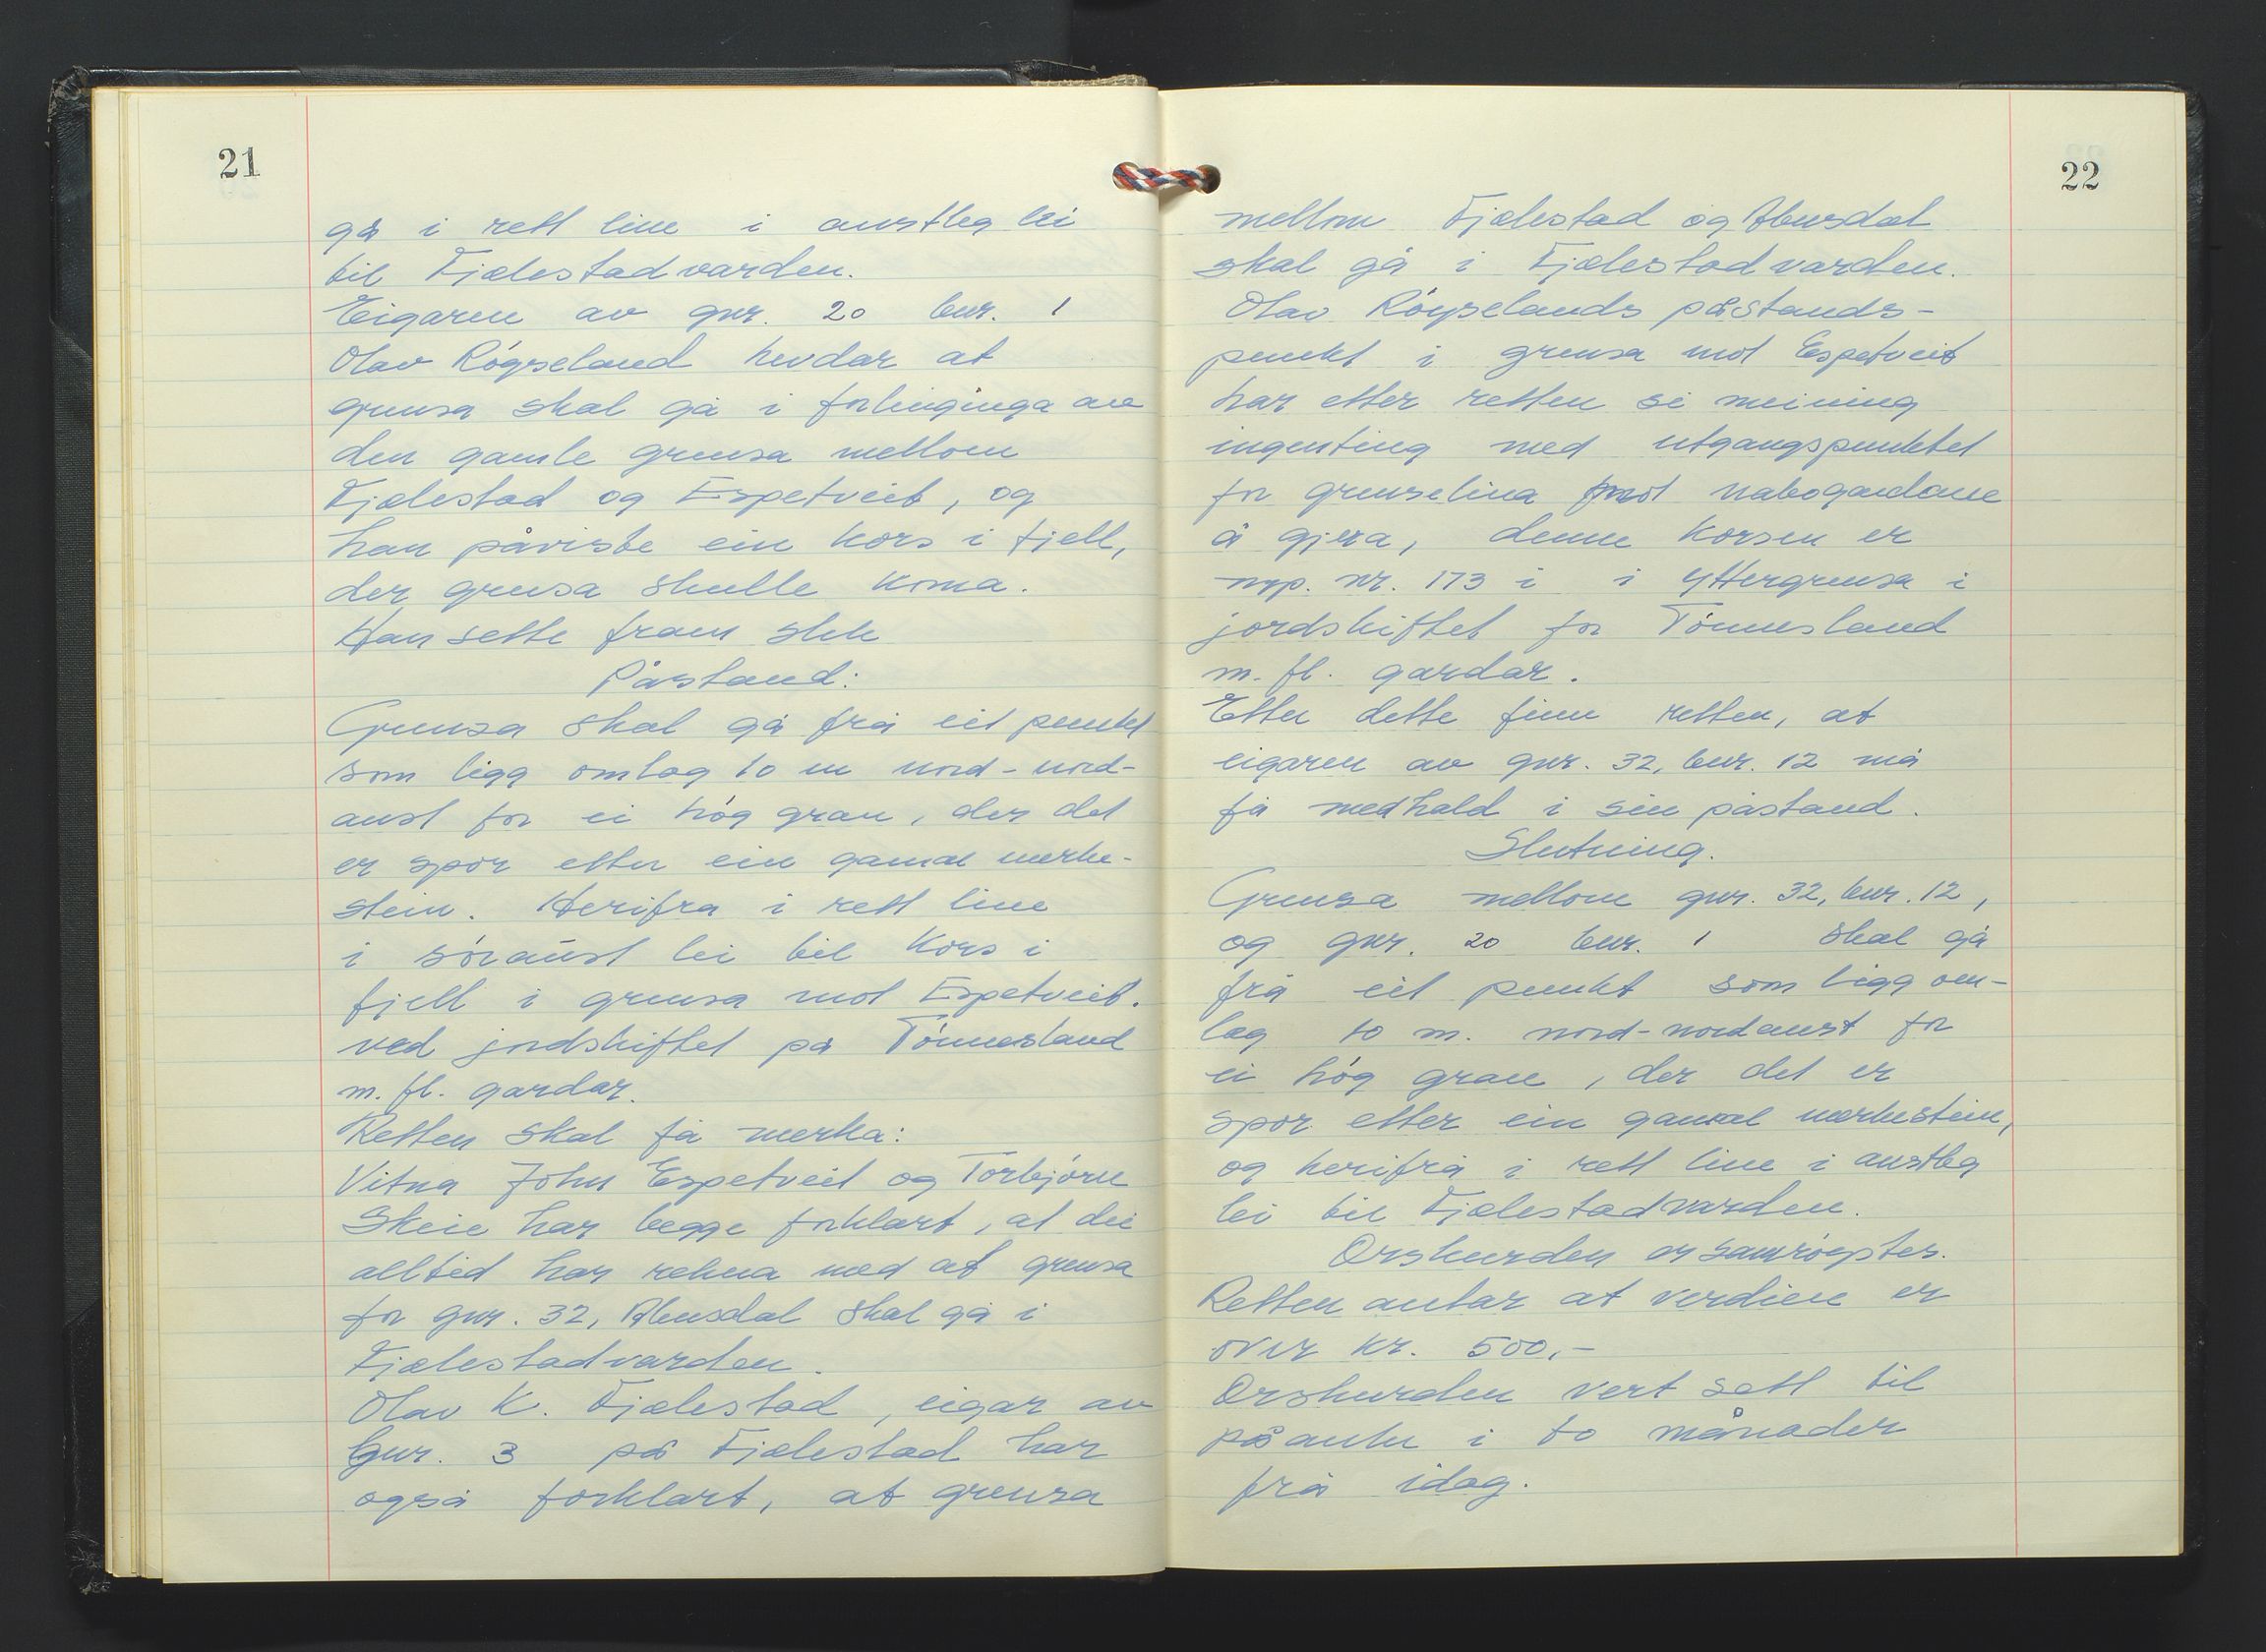 21
gå i rett line i austleg lei
til Fjælestadvarden.
Eigaren av gnr. 20 bnr. 1
Olav Røyseland hevdar at
grensa skal gå i forlenginga av
den gamle grensa mellom
Fjælestad og Espetveit, og
han påviste ein kors i fjell,
der grensa skulle koma.
Han sette fram slik
Påstand:
Grensa skal gå frå eit punkt
som ligg omlag 10 m nord-nord-
aust for ei høg gran, der det
er spor etter ein gamal merke-
stein. Herifra i rett line
i søraust lei til kors i
fjell i grensa mot Espetveit.
ved jordskiftet på Tønnesland
m. fl. gardar.
Retten skal få merka:
Vitna John Espetveit og Torbjørn
Skeie har begge forklart, at dei
alltid har rekna med at grensa
for gnr. 32, Abusdal skal gå i
Fjælestadvarden.
Olav K. Fjælestad, eigar av
bnr. 3 på Fjælestad har
også forklart, at grensa
22
mellom Fjælestad og Abusdal
skal gå i Fjælestadvarden.
Olav Røyselands påstands-
punkt i grensa mot Espetveit
har etter retten si meining
ingenting med utgangspunktet
for grenselina mot nabogardane
å gjera, denne korsen er
mp. nr. 173 i i yttergrensa i
jordskiftet for Tønnesland
m. fl. gardar.
Etter dette finn retten, at
eigaren av gnr. 32, bnr. 12 må
få medhald i sin påstand.
Slutning.
Grensa mellom gnr. 32, bnr. 12,
og gnr. 20 bnr. 1 skal gå
frå eit punkt som ligg om-
lag 10 m. nord-nordaust for
ei høg gran, der det er
spor etter ein gamal merkestein,
og herifrå i rett line i austleg
lei til Fjælestadvarden.
Orskurden er samrøystes.
Retten antar at verdien er
over kr. 500,-
Orskurden vert sett til
påanke i to månader
frå idag.